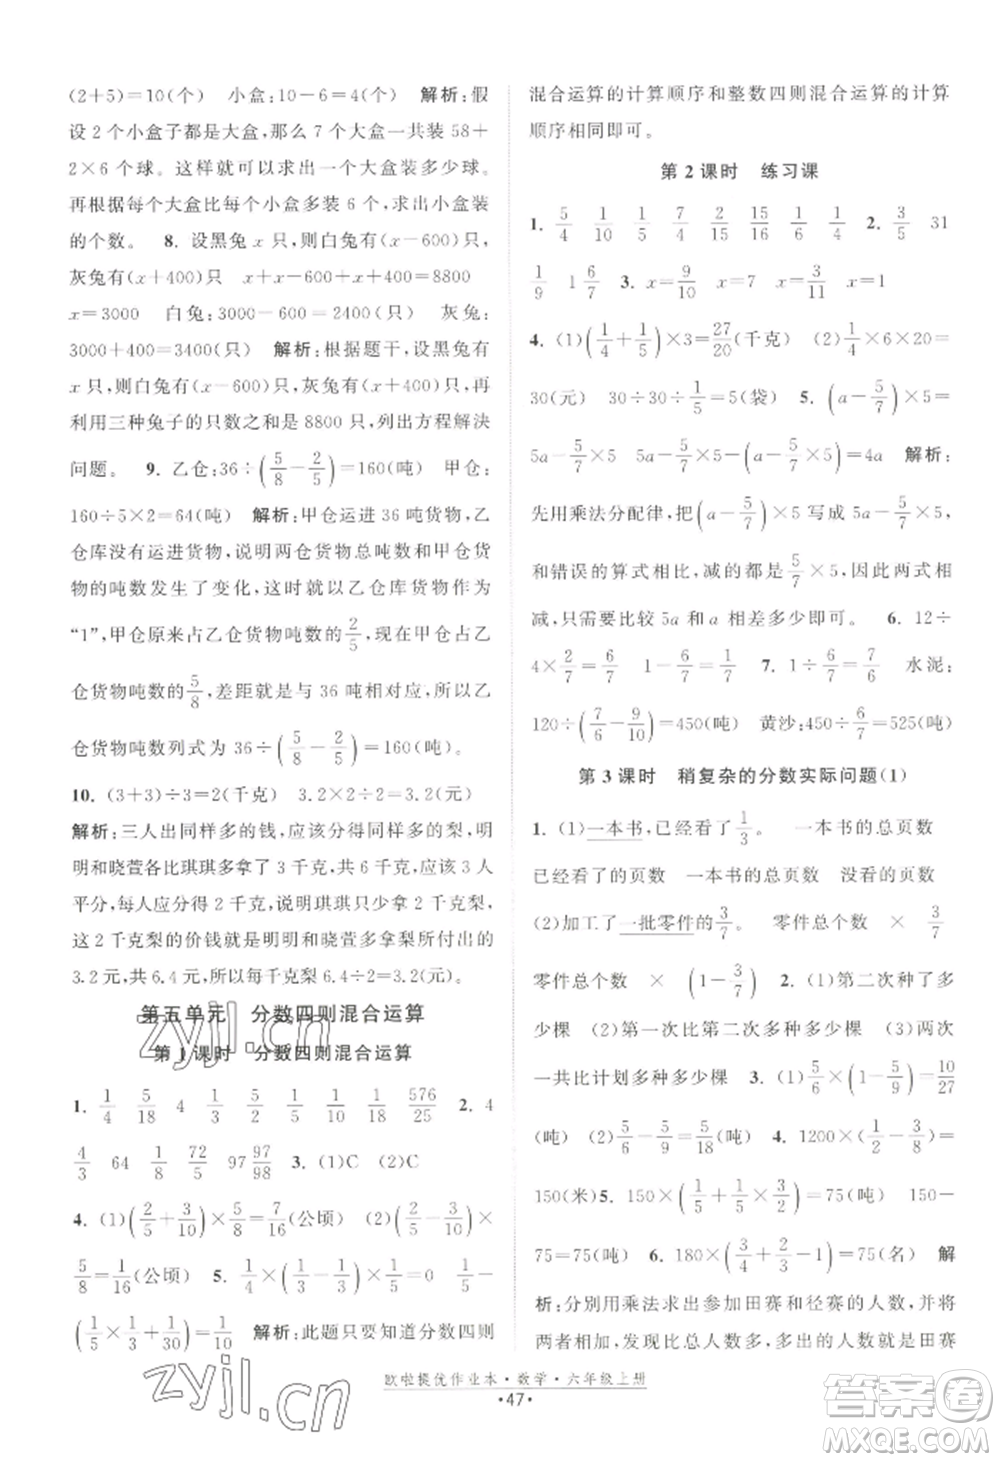 (2+5)=10(个) 小盒:10-6=4(个) 解析:假
设 2 个小盒子都是大盒,那么 7 个大盒一共装 58+
2×6 个球。这样就可以求出一个大盒装多少球。
再根据每个大盒比每个小盒多装 6 个,求出小盒装
的个数。 8. 设黑兔 x 只,则白兔有(x-600)只,
灰兔有(x+400)只 x+x-600+x+400=8800
x=3000 白兔:3000-600=2400(只) 灰兔:
3000+400=3400(只) 解析:根据题干,设黑兔有
x 只,则白兔有(x-600)只,灰兔有(x+400)只,再
利用三种兔子的只数之和是 8800 只,列出方程解决
问题。 9. 乙仓:36÷(5/8-2/5)=160(吨) 甲仓:
160÷5×2=64(吨) 解析:甲仓运进 36 吨货物,乙
仓库没有运进货物,说明两仓货物总吨数和甲仓货
物的吨数发生了变化,这时就以乙仓库货物作为
“1”,甲仓原来占乙仓货物吨数的2/5,现在甲仓占乙
仓货物吨数的5/8,差距就是与 36 吨相对应,所以乙
仓货物吨数列式为 36÷(5/8-2/5)=160(吨)。
10. (3+3)÷3=2(千克) 3.2×2÷2=3.2(元)
解析:三人出同样多的钱,应该分同样多的梨,明
明和晓萱各比琪琪多拿了 3 千克,共 6 千克,应该 3 人
平分,每人应分得 2 千克,说明琪琪只少拿了 2 千克,
这 2 千克梨的价钱就是明明和晓萱多拿梨所付出的
3.2 元,共 6.4 元,所以每千克梨 6.4÷2=3.2(元)。
第五单元 分数四则混合运算
第 1 课时 分数四则混合运算
1. 1/4 5/18 4 1/3 5/2 1/10 1/18 576/25 2. 4
4/3 64 1/8 72/5 97 97/98 3. (1)C (2)C
4. (1)(2/5+3/10)×5/8=7/16(公顷) (2)(2/5-3/10)×
5/8=1/16(公顷) 5. 1/5×(1/3-1/3)×1/5=0
(1/5×1/3+1/3)×1/5 解析:此题只要知道分数四则
混合运算的计算顺序和整数四则混合运算的计算
顺序相同即可。
第 2 课时 练习课
1. 5/4 1/10 1/5 7/4 2/15 15/16 1/3 1/4 2. 3/5 31
1/9 1 6/7 3. x=9/10 x=7 x=3/11 x=1
4. (1)(1/4+1/5)×3=27/20(千克) (2)50×3/5=
30(元) 30÷30÷1/5=5(袋) 5. (a-5/7)×5=
5a-5/7×5 5a-5/7×5-(a-5/7×5)=4a 解析:
先用乘法分配律,把(a-5/7)×5 写成 5a-5/7×5,
和错误的算式相比,减的都是5/7×5,因此两式相
减,只需要比较 5a 和 a 相差多少即可。 6. 12÷
4×2/7=6/7 1-6/7=1/7 7. 1÷6/7=7/6 水泥:
120÷(7/6-9/10)=450(吨) 黄沙:450÷6/7=525(吨)
第 3 课时 稍复杂的分数实际问题(1)
1. (1)一本书,已经看了1/3。 一本书的总页数
已经看的页数 一本书的总页数 没看的页数
(2)加工了一批零件的3/7。 零件总个数 × 3/7
零件总个数 × (1-3/7) 2. (1)第二次种了多
少棵 (2)第一次比第二次多种多少棵 (3)两次
一共比计划多种多少棵 3. (1)5/6×(1-5/9)=10/27
(吨) (2)5/6-5/9=5/18(吨) 4. 1200×(1/2-3/8)=
150(米)5. 150×(1/5+1/5×3/2)=75(吨) 150-
75=75(吨) 6. 180×(3/4+2/3-1)=75(名) 解
析:分别用乘法求出参加田赛和径赛的人数,并将
两者相加,发现比总人数多,多出的人数就是田赛
欧啦提优作业本·数学·六年级上册
·47·
zyjl.cn
zyjl.cn
答案圈
MXQE.COM